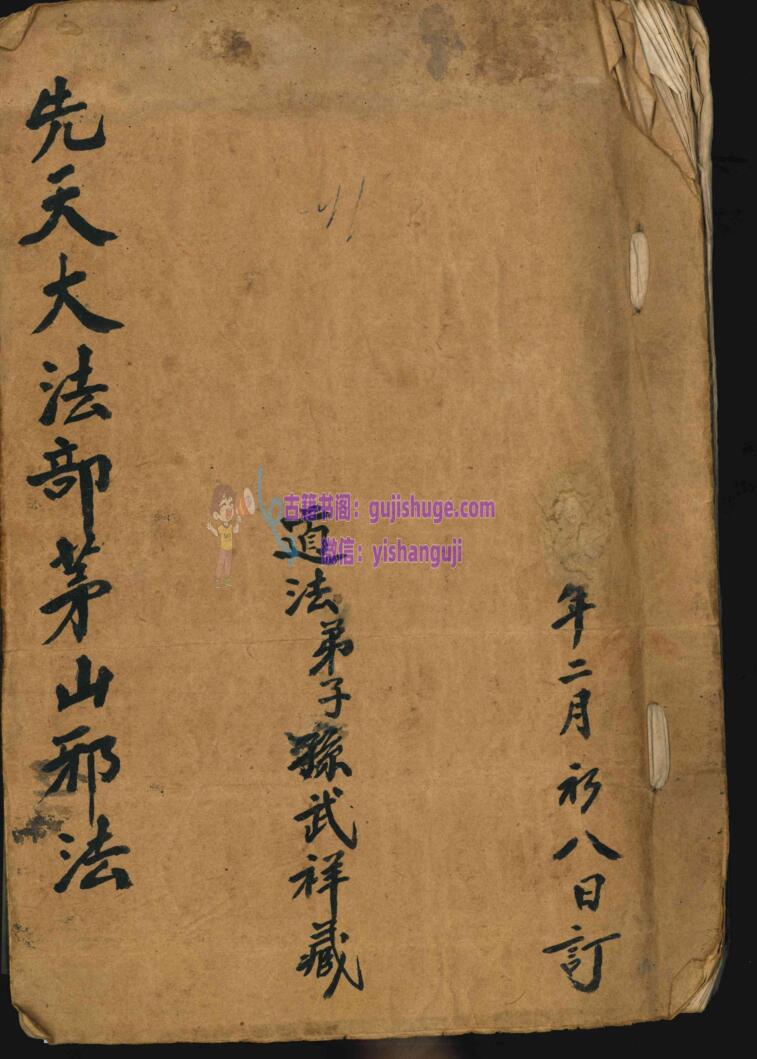 年二月初八日訂
道法弟子孫武祥藏
先天大法部茅山邪法
古籍书阁：gujishuge.com
微信：yishanguji